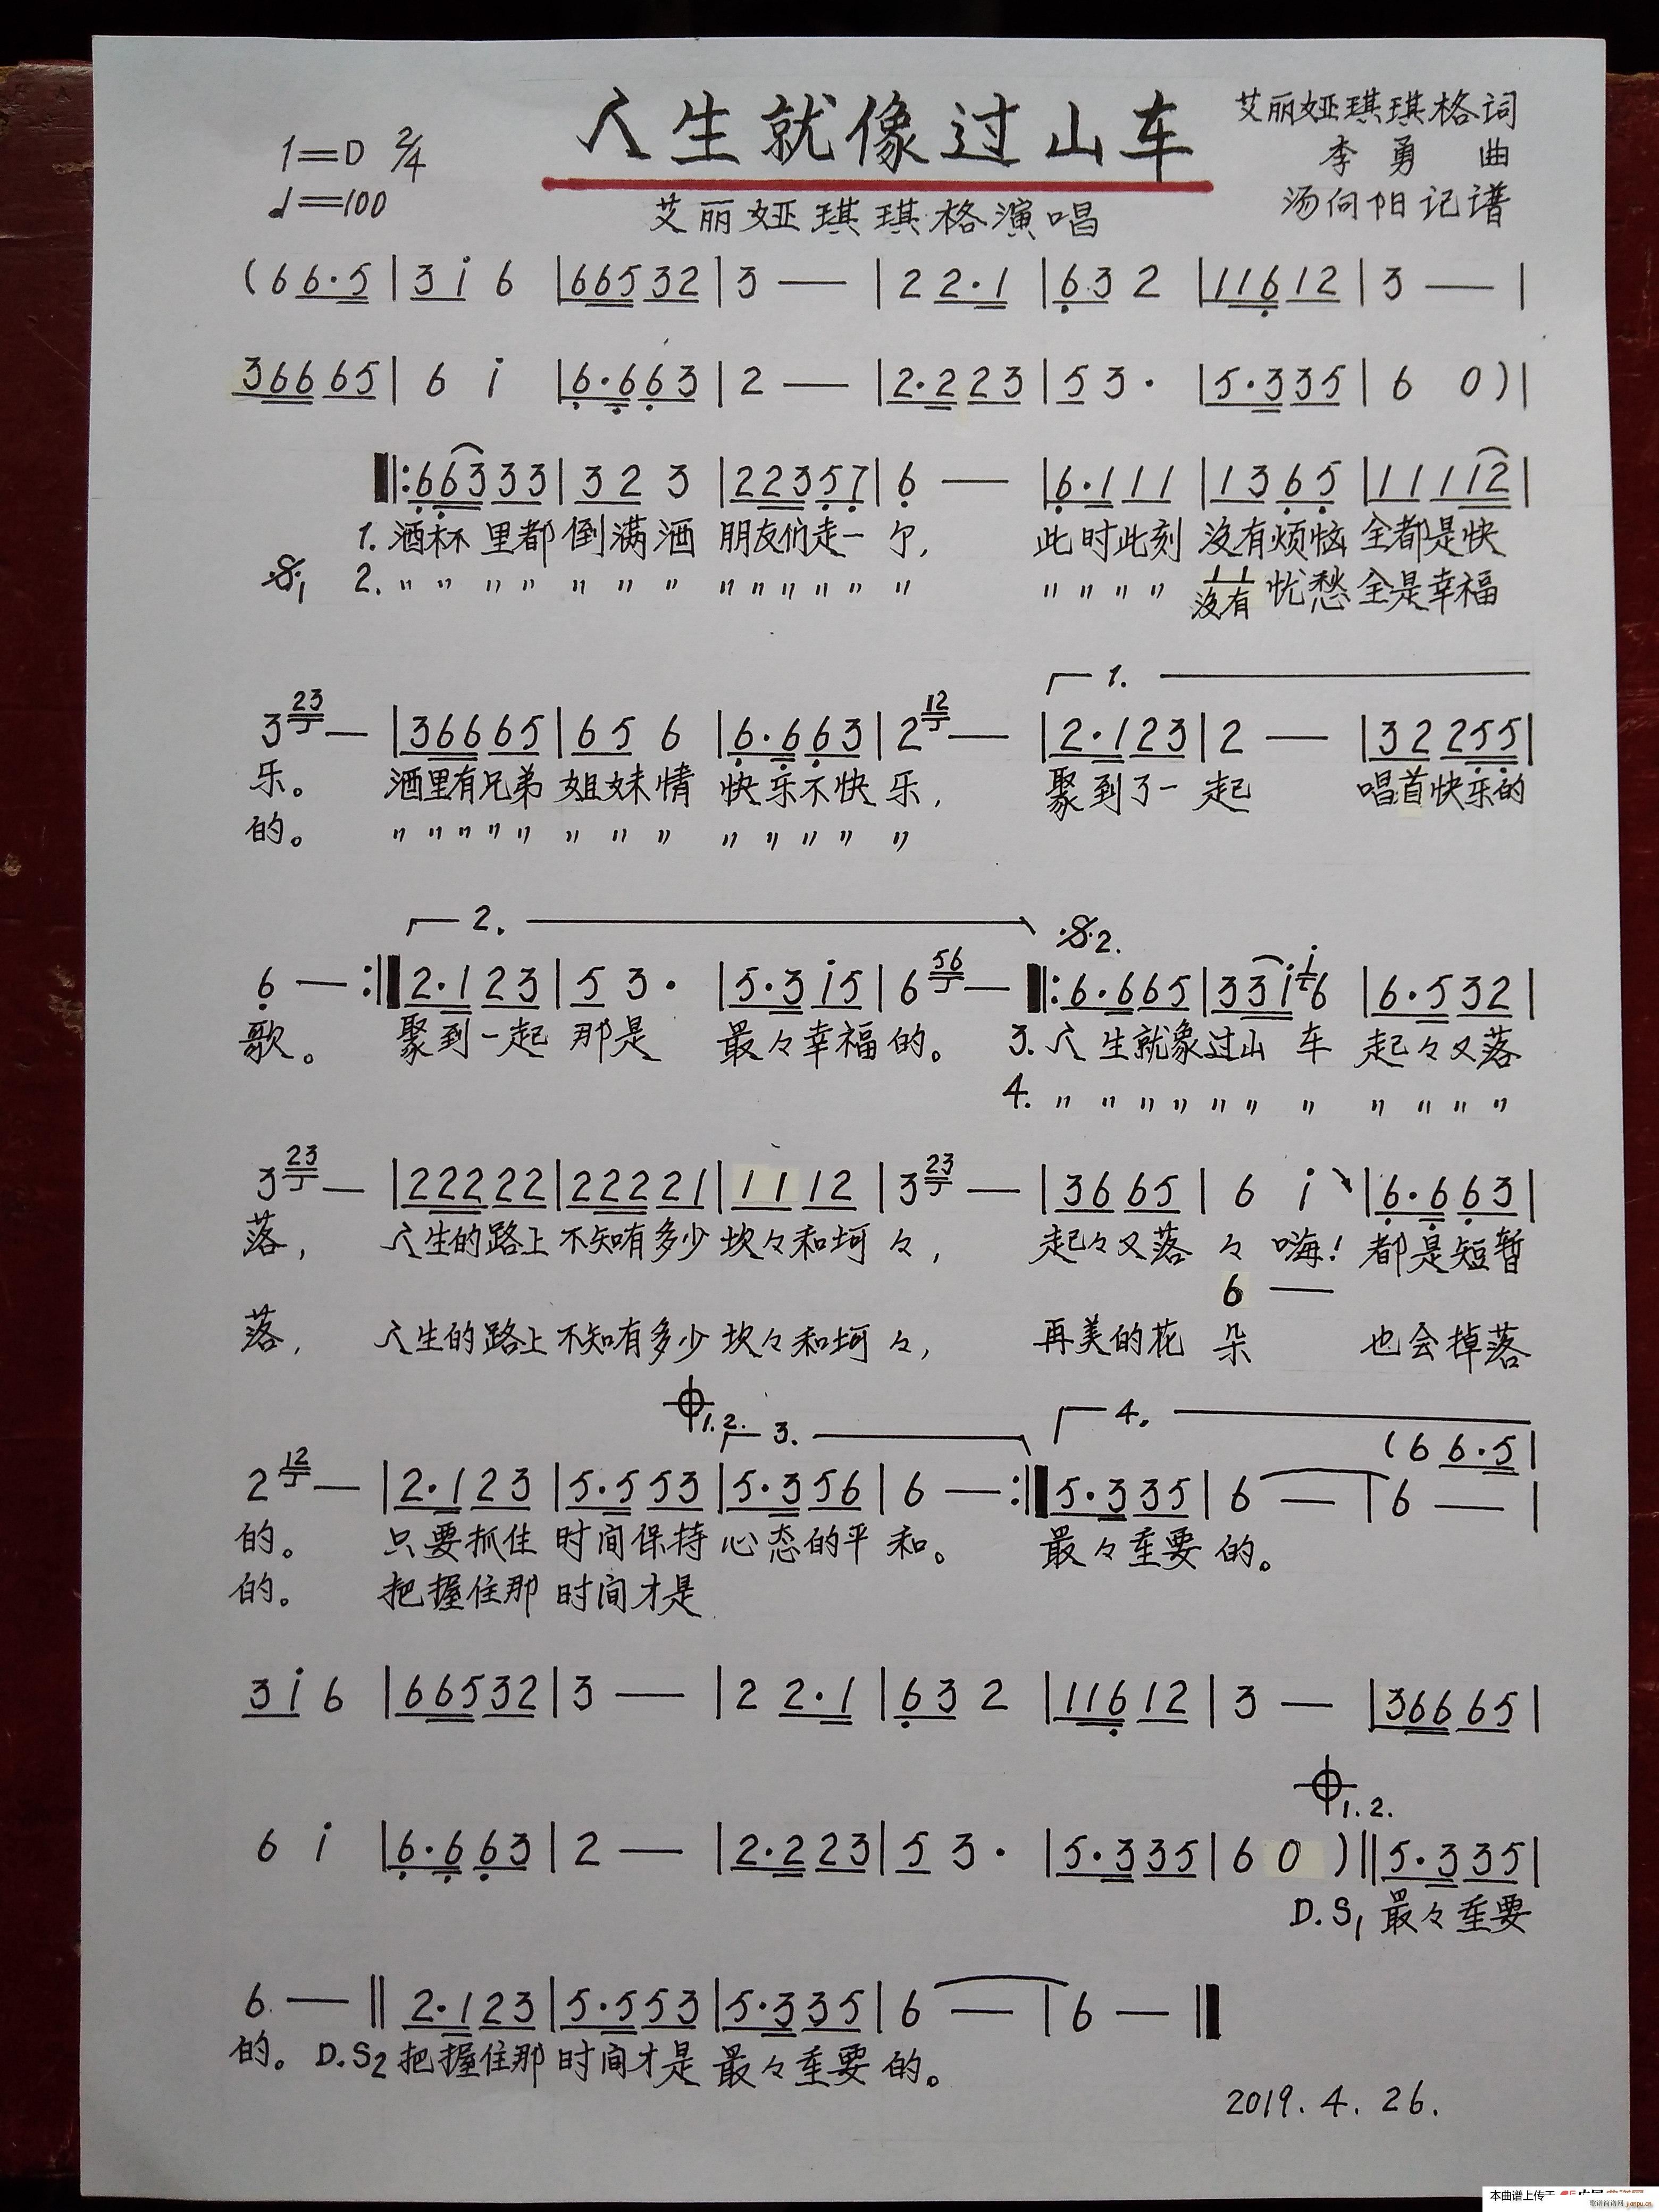 人生就像过山车
艾丽娅琪琪格词
1=D 2/4
李勇 曲
♩=100
艾丽娅琪琪格演唱
汤向阳记谱
(6 6·5 | 3 i 6 | 66532 | 3 — | 2 2·1 | 63 2 | 11612 | 3 — |
36665 | 6 i | 6·663 | 2 — | 2·223 | 5 3· | 5·335 | 6 0) |
‖:66333 | 32 3 | 22357 | 6 — | 6·111 | 1365 | 11112 |
1. 酒杯里都倒满酒 朋友们走一个, 此时此刻 没有烦恼 全都是快
𝄋1 2. 〃〃〃〃〃〃〃 〃〃〃〃〃〃 〃〃〃〃 11 没有 忧愁 全是幸福
1.
3 23 — | 36665 | 65 6 | 6·663 | 2 12 — | 2·123 | 2 — | 32 255 |
乐。 酒里有兄弟 姐妹情 快乐不快乐, 聚到了一起 唱首快乐的
的。 〃〃〃〃〃 〃〃〃 〃〃〃〃〃
2. 𝄋2.
6 — :‖ 2·123 | 5 3· | 5·3i5 | 6 56 — ‖: 6·665 | 33i i6 | 6·532 |
歌。 聚到一起 那是 最々幸福的。 3. 人生就象过山车 起々又落
4. 〃〃〃〃〃〃〃 〃〃〃〃
3 23 — | 22222 | 22221 | 1112 | 3 23 — | 3665 | 6 i | 6·663 |
落, 人生的路上 不知有多少 坎々和坷々, 起々又落々 嗨! 都是短暂
6 —
落, 人生的路上 不知有多少 坎々和坷々, 再美的花朵 也会掉落
1. 2. 3. 4.
(6 6·5 |
2 12 — | 2·123 | 5·553 | 5·356 | 6 — :‖ 5·335 | 6 — | 6 — |
的。 只要抓住 时间保持 心态的平和。 最々重要的。
的。 把握住那 时间才是
3 i 6 | 66532 | 3 — | 2 2·1 | 63 2 | 11612 | 3 — | 36665 |
1. 2.
6 i | 6·663 | 2 — | 2·223 | 5 3· | 5·335 | 6 0 ) ‖ 5·335 |
D.S1 最々重要
6 — ‖ 2·123 | 5·553 | 5·335 | 6 — | 6 — ‖
的。D.S2 把握住那 时间才是 最々重要的。
2019.4.26.
本曲谱上传于
歌谱简谱网 jianpu.cn